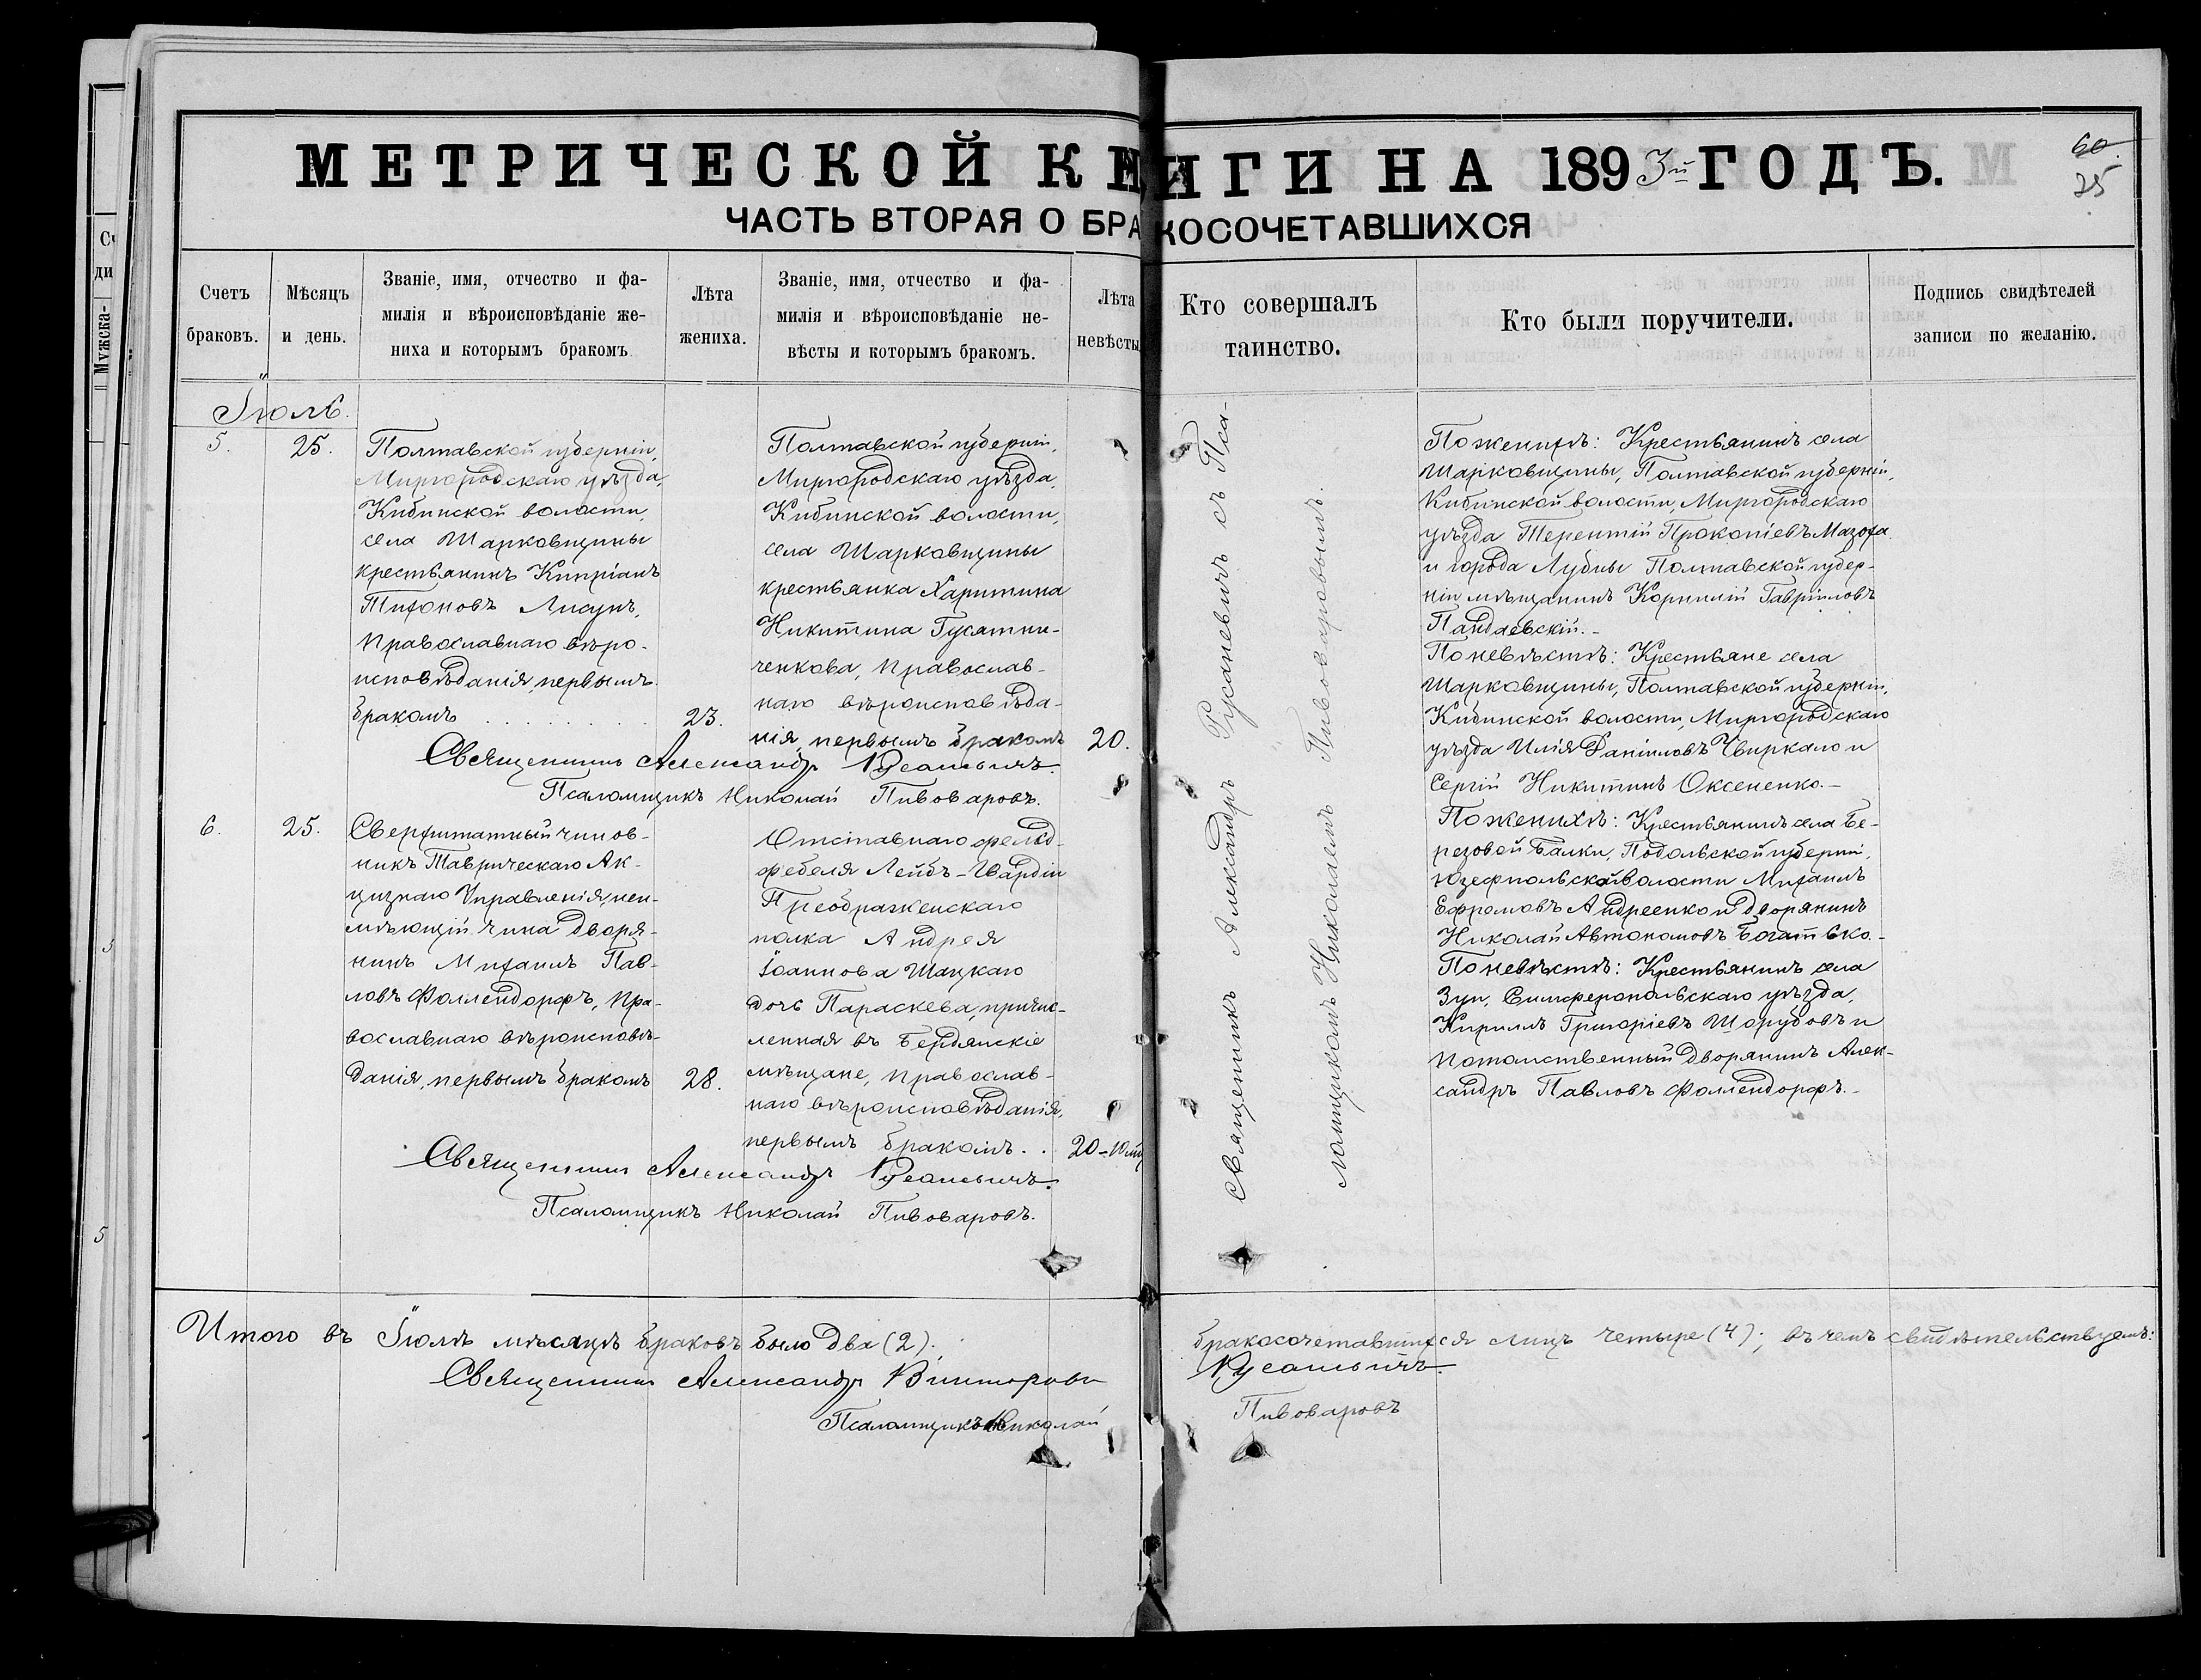 МЕТРИЧЕСКОЙ КНИГИ НА 1893й ГОДЪ.
60.
25
ЧАСТЬ ВТОРАЯ О БРАКОСОЧЕТАВШИХСЯ
Счетъ
браковъ.
Мѣсяцъ
и день.
Званіе, имя, отчество и фа-
милія и вѣроисповѣданіе же-
ниха и которымъ бракомъ
Лѣта
жениха.
Званіе, имя, отчество и фа-
милія и вѣроисповѣданіе не-
вѣсты и которымъ бракомъ.
Лѣта
невѣсты
Кто совершалъ
таинство.
Кто были поручители.
Подпись свидѣтелей
записи по желанію.
Іюль.
5.
25.
Полтавской губерніи,
Миргородскаго уѣзда,
Кибинской волости,
села Шарковщины
крестьянинъ Кипріанъ
Тихоновъ Лисунъ,
православнаго вѣро-
исповѣданія, первымъ
бракомъ
23.
Полтавской губерніи,
Миргородскаго уѣзда,
Кибинской волости,
села Шарковщины
крестьянка Харитина
Никитина Гусятни-
ченкова, православ-
наго вѣроисповѣда-
нія, первымъ бракомъ
20.
Священникъ Александръ Русаневичъ.
Псаломщикъ Николай Пивоваровъ.
Священникъ Александръ Русаневичъ съ Пса-
ломщикомъ Николаемъ Пивоваровымъ.
По женихѣ: Крестьянинъ села
Шарковщины, Полтавской губерніи,
Кибинской волости, Миргородскаго
уѣзда Терентій Прокопіевъ Мазоха
и города Лубны Полтавской губер-
ніи мѣщанинъ Корнилій Гавріиловъ
Пандаевскій.-
По невѣстѣ: Крестьяне села
Шарковщины, Полтавской губерніи,
Кибинской волости, Миргородскаго
уѣзда Илія Даніиловъ Чвиркало и
Сергій Никитинъ Оксененко.-
6.
25.
Сверхштатный чинов-
никъ Таврическаго Ак-
цизнаго Управленія, неи-
мѣющій чина дворя-
нинъ Михаилъ Пав-
ловъ Фоллендорфъ, пра-
вославнаго вѣроисповѣ-
данія, первымъ бракомъ
28.
Отставнаго фельд-
фебеля Лейбъ-Гвардіи
Преображенскаго
полка Андрея
Іоаннова Шацкаго
дочь Параскева, причис-
ленная въ Бердянскіе
мѣщане, православ-
наго вѣроисповѣданія,
первымъ бракомъ..
20-10
Священникъ Александръ Русаневичъ.
Псаломщикъ Николай Пивоваровъ.
По женихѣ: Крестьянинъ села Бе-
резовой Балки, Подольской губерніи,
Юзефпольской волости Михаилъ
Ефремовъ Андреенко и дворянинъ
Николай Автономовъ Богатько.-
По невѣстѣ: Крестьянинъ села
Зуи, Симферопольскаго уѣзда,
Кириллъ Григоріевъ Шорубовъ и
потомственный дворянинъ Алек-
сандръ Павловъ Фоллендорфъ.-
Итого въ Іюлѣ мѣсяцѣ браковъ было два (2), бракосочетавшихся лицъ четыре (4); въ чемъ свидѣтельствуемъ:
Священникъ Александръ Викторовъ Русаневичъ.
Псаломщикъ Николай Пивоваровъ